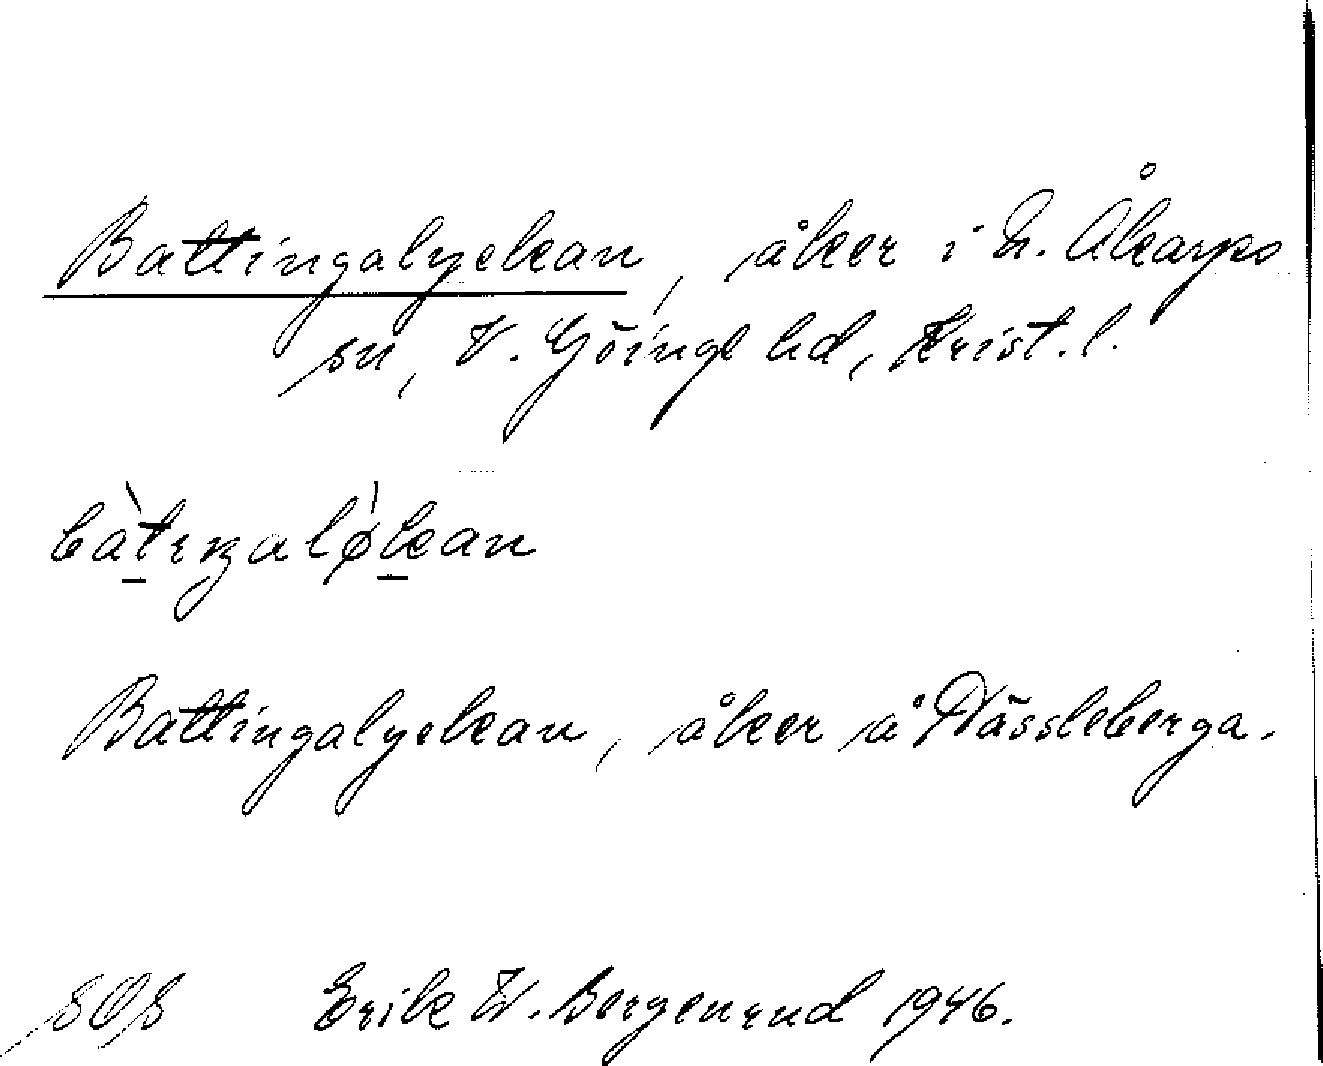 Battingalyckan, åker i N. Åkarps
sn, V. Göinge hd, Krist. l.
bàtıŋalǿkan
Battingalyckan, åker å Nässleberga.
SOS Erik W. Bergenrud 1946.